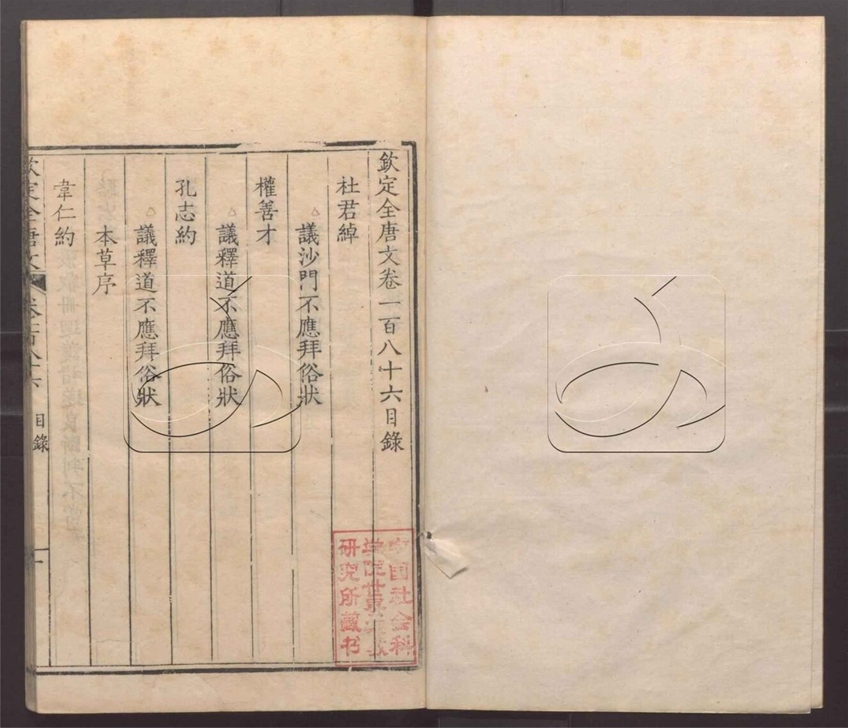 欽定全唐文卷一百八十六目錄
杜君綽
議沙門不應拜俗狀
權善才
議釋道不應拜俗狀
孔志約
議釋道不應拜俗狀
本草序
韋仁約
欽定全唐文 目錄
国社会科
学院世
研究所藏书